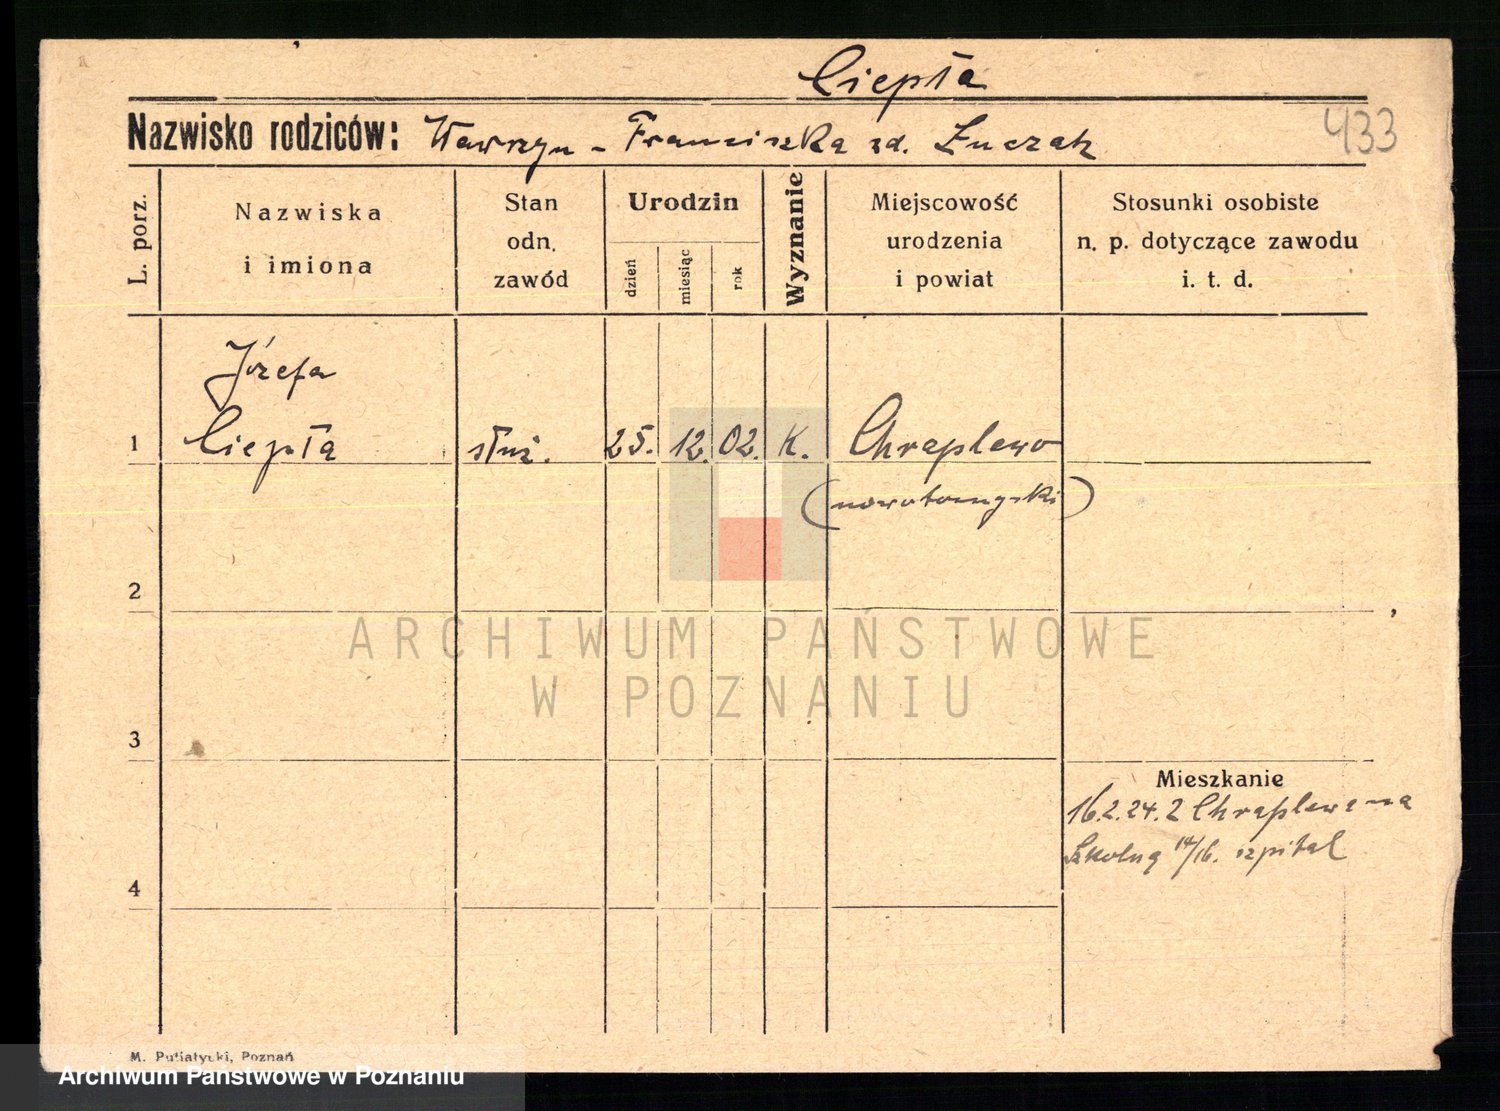 Ciepła
Nazwisko rodziców: Wawrzyn - Franciszka zd. Łuczak
433
L. porz.
Nazwiska
i imiona
Stan
odn.
zawód
Urodzin
dzień
miesiąc
rok
Wyznanie
Miejscowość
urodzenia
i powiat
Stosunki osobiste
n. p. dotyczące zawodu
i. t. d.
Józefa
1 Ciepła służ. 25. 12. 02. K. Chraplewo
(nowotomyski)
2
ARCHIWUM PAŃSTWOWE
W POZNANIU
3
Mieszkanie
16.2.24. z Chraplewa na
Szkolną 14/16. szpital
4
M. Putiatycki, Poznań
Archiwum Państwowe w Poznaniu